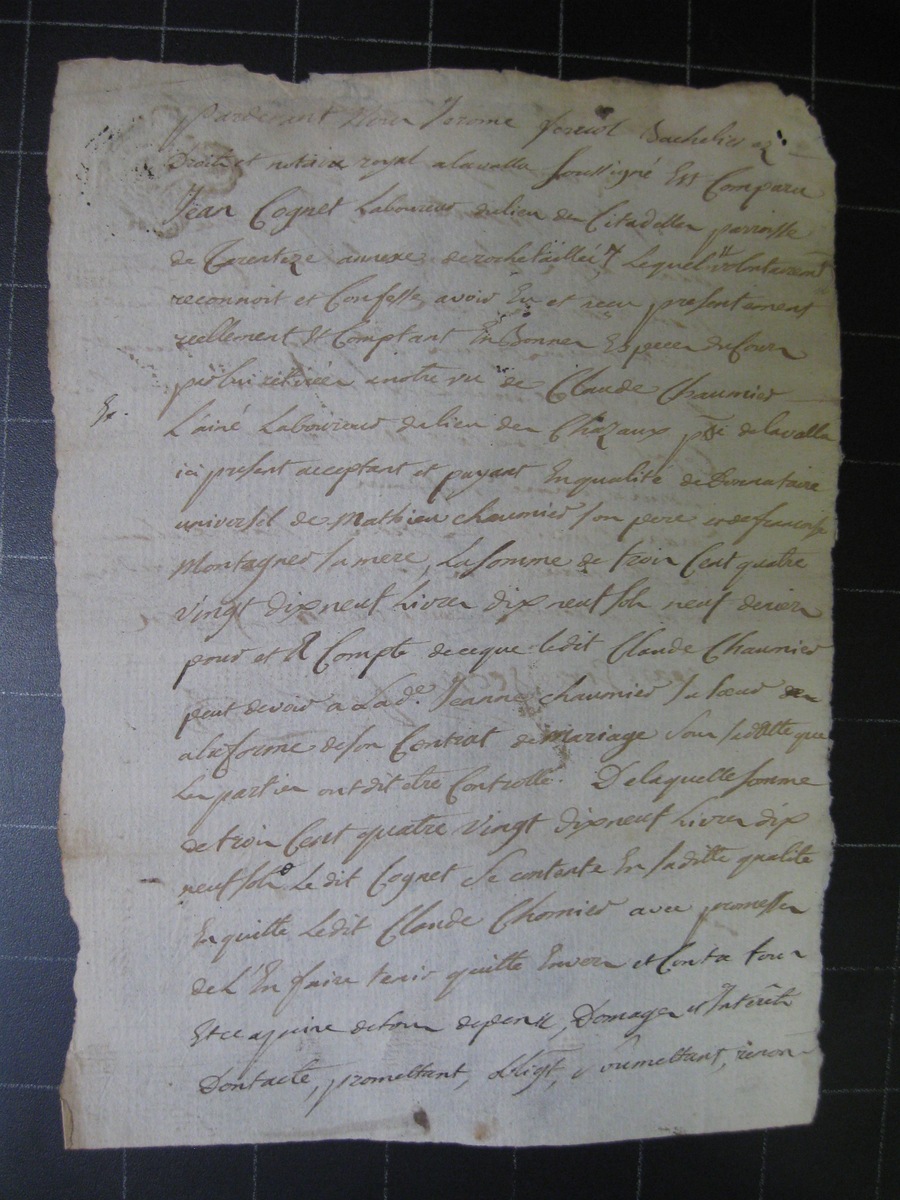 Pardevant Nous Jerome foreust Bachelier ez
Droits et notaire royal alavalla soussigné Est Comparu
Jean Cognet Laboureur dulieu des Citadelles parroisse
de Tarenteze annexe de rochetaillée lequel volontairemt
reconnoit et Confesse avoir Eu et recu presentement
reellement et Comptant En Bonnes Especes du cours
par lui retirées anotre vu de Claude Chaumier
L'ainé Laboureur dulieu des Chazaux psse delavalla
ici present acceptant et payant Enqualité de Donataire
universel de Mathieu chaumier son pere et de francoise
Montagner sa mere, La somme de trois Cent quatre
vingt dix neuf Livres dix neuf sols neuf deniers
pour et A Compte deceque ledit Claude Chaumier
peut devoir a Lade. Jeanne chaumier sa soeur
ala forme deson Contrat de Mariage sous sa datte que
Les parties ont dit etre Controllé. Delaquelle somme
de trois Cent quatre vingt dixneuf Livres dix
neuf sols Le dit Cognet se contente En saditte qualité
En quitte Ledit Claude Chomier avec promesse
de L'En faire tenir quitte Envers et Contre tous
Et ce apeine detous depens, Domages et Interêts
Dontacte, promettant, obligt, soumettant, renon-